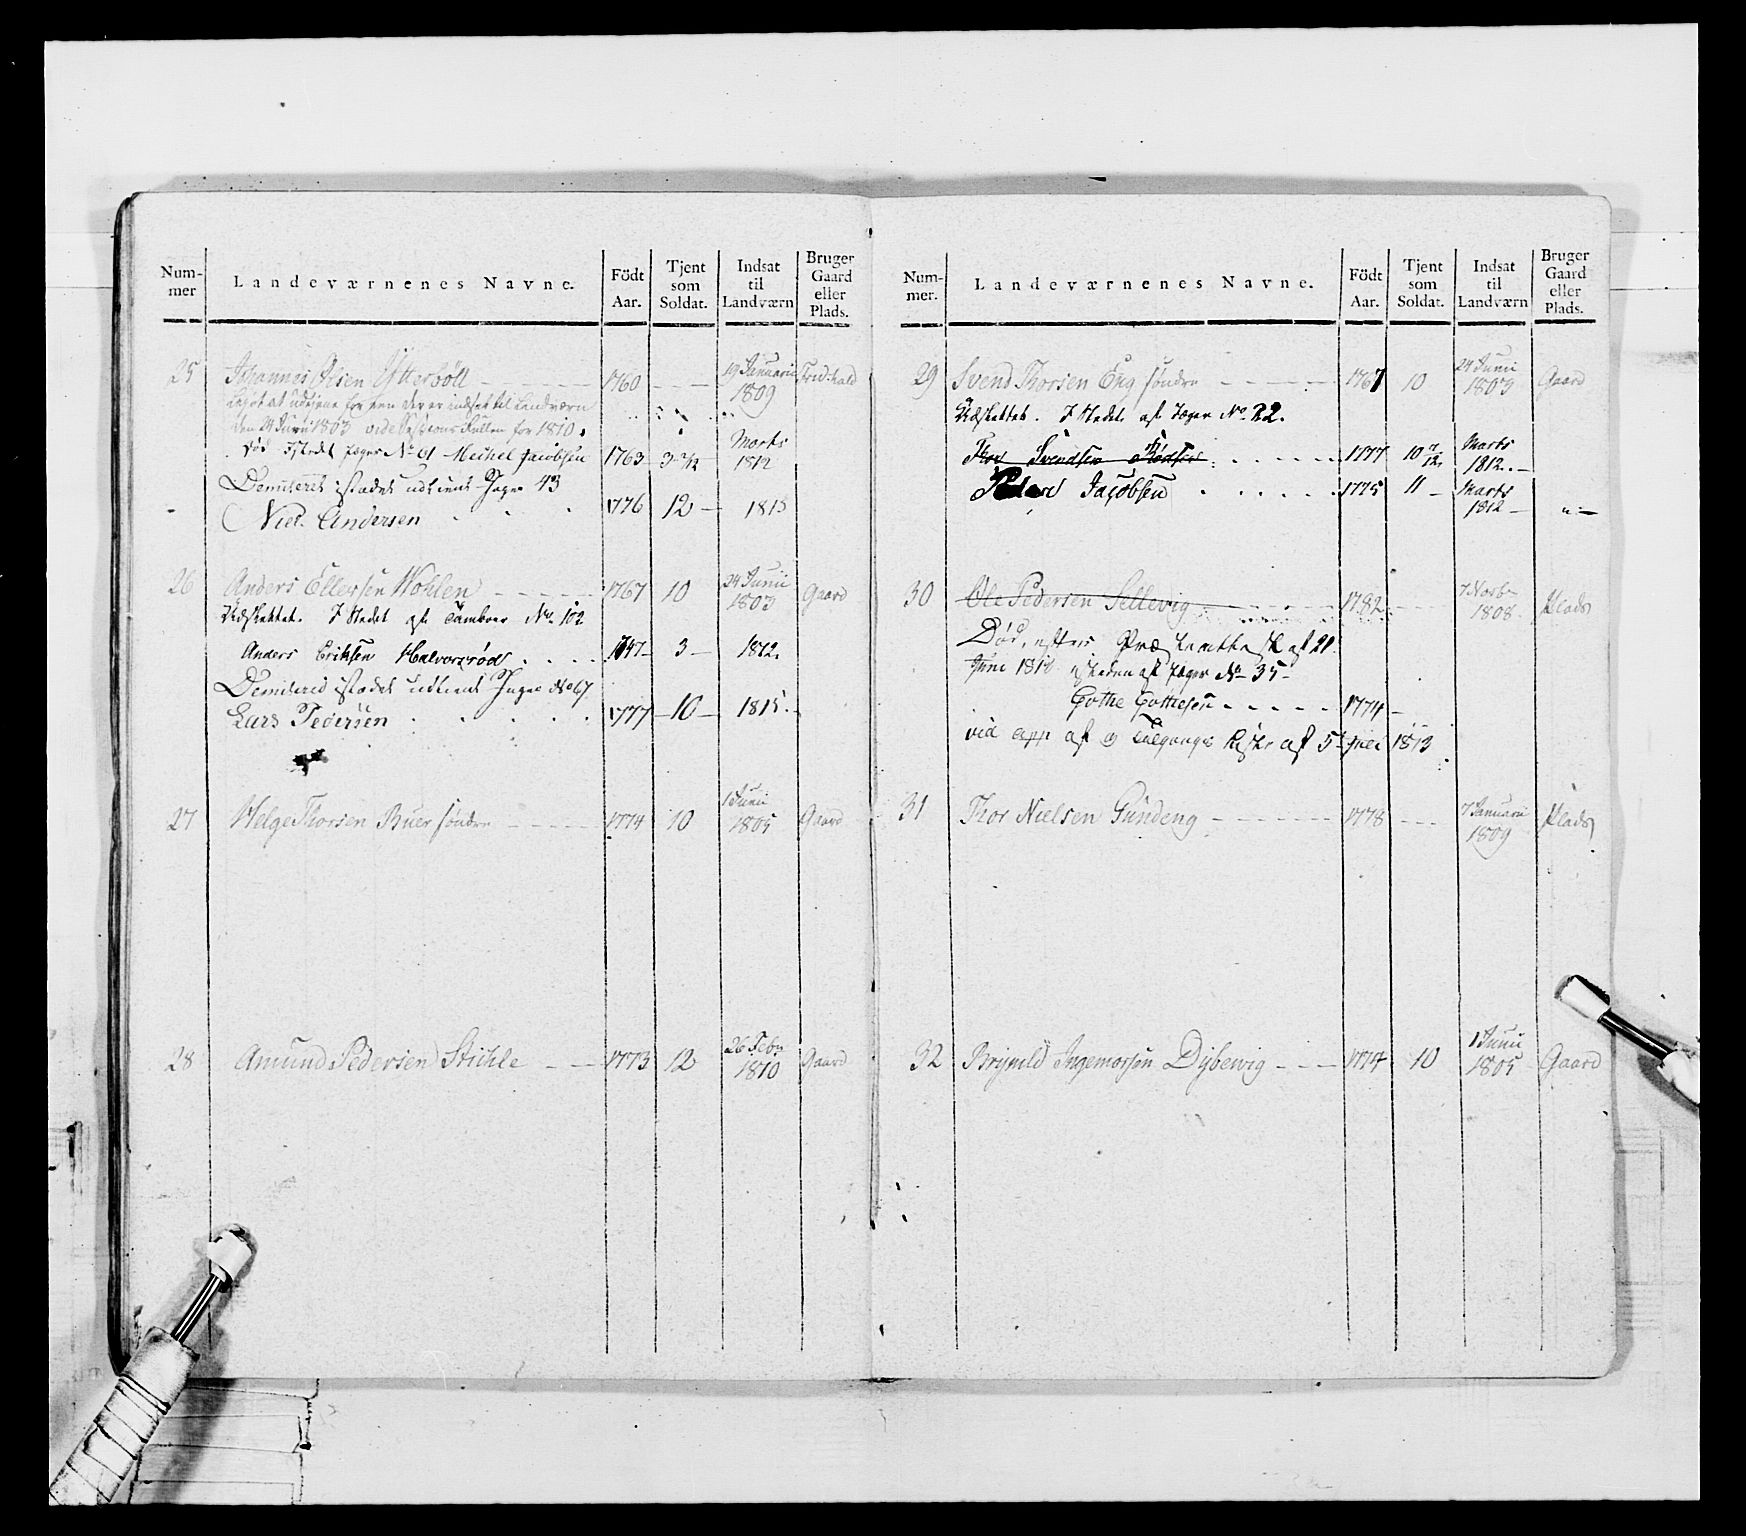 Num-mer Landeværnenes Navne. Födt Aar. Tjent som Soldat. Indsat til Landværn Bruger Gaard eller Plads.
25 Johannes Olsen Ytterböll 1760 19 Januarii 1809 Frid:hald
at udtjene for den der er indsat til Landværn
den 24 Junii 1803 vide Sessions Rullen for 1810.
Död I stedet Jæger No 61 Michel Jacobsen 1763 3 3/12 Marts 1812
Demiteret istædet udtient Jæger 43
Niel. Andersen 1776 12 1815
26 Anders Ellefsen Wohlen 1767 10 24 Junii 1803 Gaard
Udslettet. I Stedet af Tambour No 102
Anders Eriksen Halvorsröd 1747 3 1812.
Demiterid istædet udtient Jæger No 67
Lars Pedersen 1777 10 1815.
27 Helge Thorsen Buer söndre 1774 10 1 Junii 1805 Gaard
28 Amund Pedersen Stichle 1773 12 26 Febr 1810 Gaard
Num-mer. Landeværnenes Navne. Födt Aar. Tjent som Soldat. Indsat til Landværn Bruger Gaard eller Plads.
29 Svend Thorsen Eng söndre 1767 10 24 Junii 1803 Gaard
Udslettet. I Stedet af Jæger No 22.
Thor Svendsen Rödsen 1777 10 7/12 Marts 1812.
Peder Jacobsen 1775 11 Marts 1812
30 Ole Pedersen Sellevig 1782 7 Novbr 1808 Plads
Död, efter Præsteattest af 21
Juni 1812 isteden af Jæger No 35
Gothe Gottesen 1774
vid app af og Tilgangs Liste af 5 Juli 1813
31 Thor Nielsen Gundeng 1778 7 Januarii 1809 Plads
32 Brynild Ingemorsen Dybevig 1774 10 1 Junii 1805 Gaard